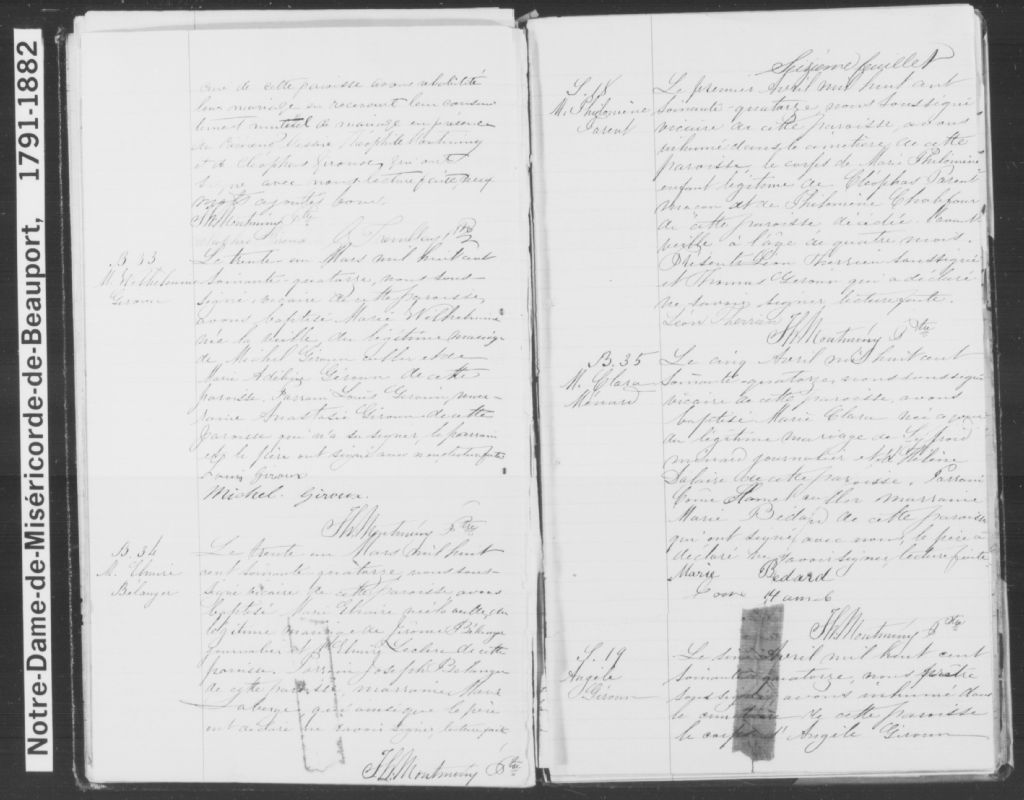 Notre-Dame-de-Miséricorde-de-Beauport, 1791-1882
curé de cette paroisse avons
leur mariage en recevant leur consen-
tement mutuel de mariage en présence
de Théophile Montminy
et de Cléophas Giroux, qui ont
signé avec nous lecture faite,
mots ajoutés bons
Th Montminy Ptre
Tremblay Ptre
B 33
M. Wilhelmine
Giroux
Le trente un Mars mil huit cent
soixante quatorze, nous sous-
signé vicaire de cette paroisse,
avons baptisé Marie Wilhelmine
née la veille, du légitime mariage
de Michel Giroux et de
Marie Giroux de cette
paroisse. Parrain Louis Giroux, mar-
raine Anastasie Giroux de cette
paroisse qui n'a su signer, le parrain
et le père ont signé avec nous lecture faite
Louis Giroux
Michel Giroux
Th Montminy Ptre
B. 34
M. Elmire
Bélanger
Le trente un Mars mil huit
cent soixante quatorze, nous sous-
signé vicaire de cette paroisse avons
baptisé Marie Elmire née la veille, du
légitime mariage de Bélanger
journalier et d'Elmire Leclerc de cette
paroisse. Parrain Joseph Bélanger
de cette paroisse, marraine Marie
Laberge, qui ainsi que le père
ont déclaré ne savoir signer, lecture faite
Th Montminy Ptre
Sixième feuillet
S. 18
M. Philomène
Parent
Le premier Avril mil huit cent
soixante quatorze nous soussigné
vicaire de cette paroisse, avons
inhumé dans le cimetière de cette
paroisse, le corps de Marie Philomène
enfant légitime de Cléophas Parent
maçon et de Philomène Chalifour
de cette paroisse décédée l'avant
veille à l'âge de quatre mois.
Présents Léon Therrien soussigné
et Thomas Giroux qui a déclaré
ne savoir signer, lecture faite.
Léon Therrien
Th Montminy Ptre
B. 35
M. Clara
Ménard
Le cinq Avril mil huit cent
soixante quatorze, nous soussigné
vicaire de cette paroisse, avons
baptisé Marie Clara née
du légitime mariage de
Ménard journalier et d'Hélène
de cette paroisse. Parrain
Côme Hamel marraine
Marie Bédard de cette paroisse
qui ont signé avec nous, le père a
déclaré ne savoir signer, lecture faite
Marie Bedard
Come Hamel
Th Montminy Ptre
S. 19
Angèle
Giroux
Le six Avril mil huit cent
soixante quatorze, nous prêtre
soussigné avons inhumé dans
le cimetière de cette paroisse
le corps d'Angèle Giroux